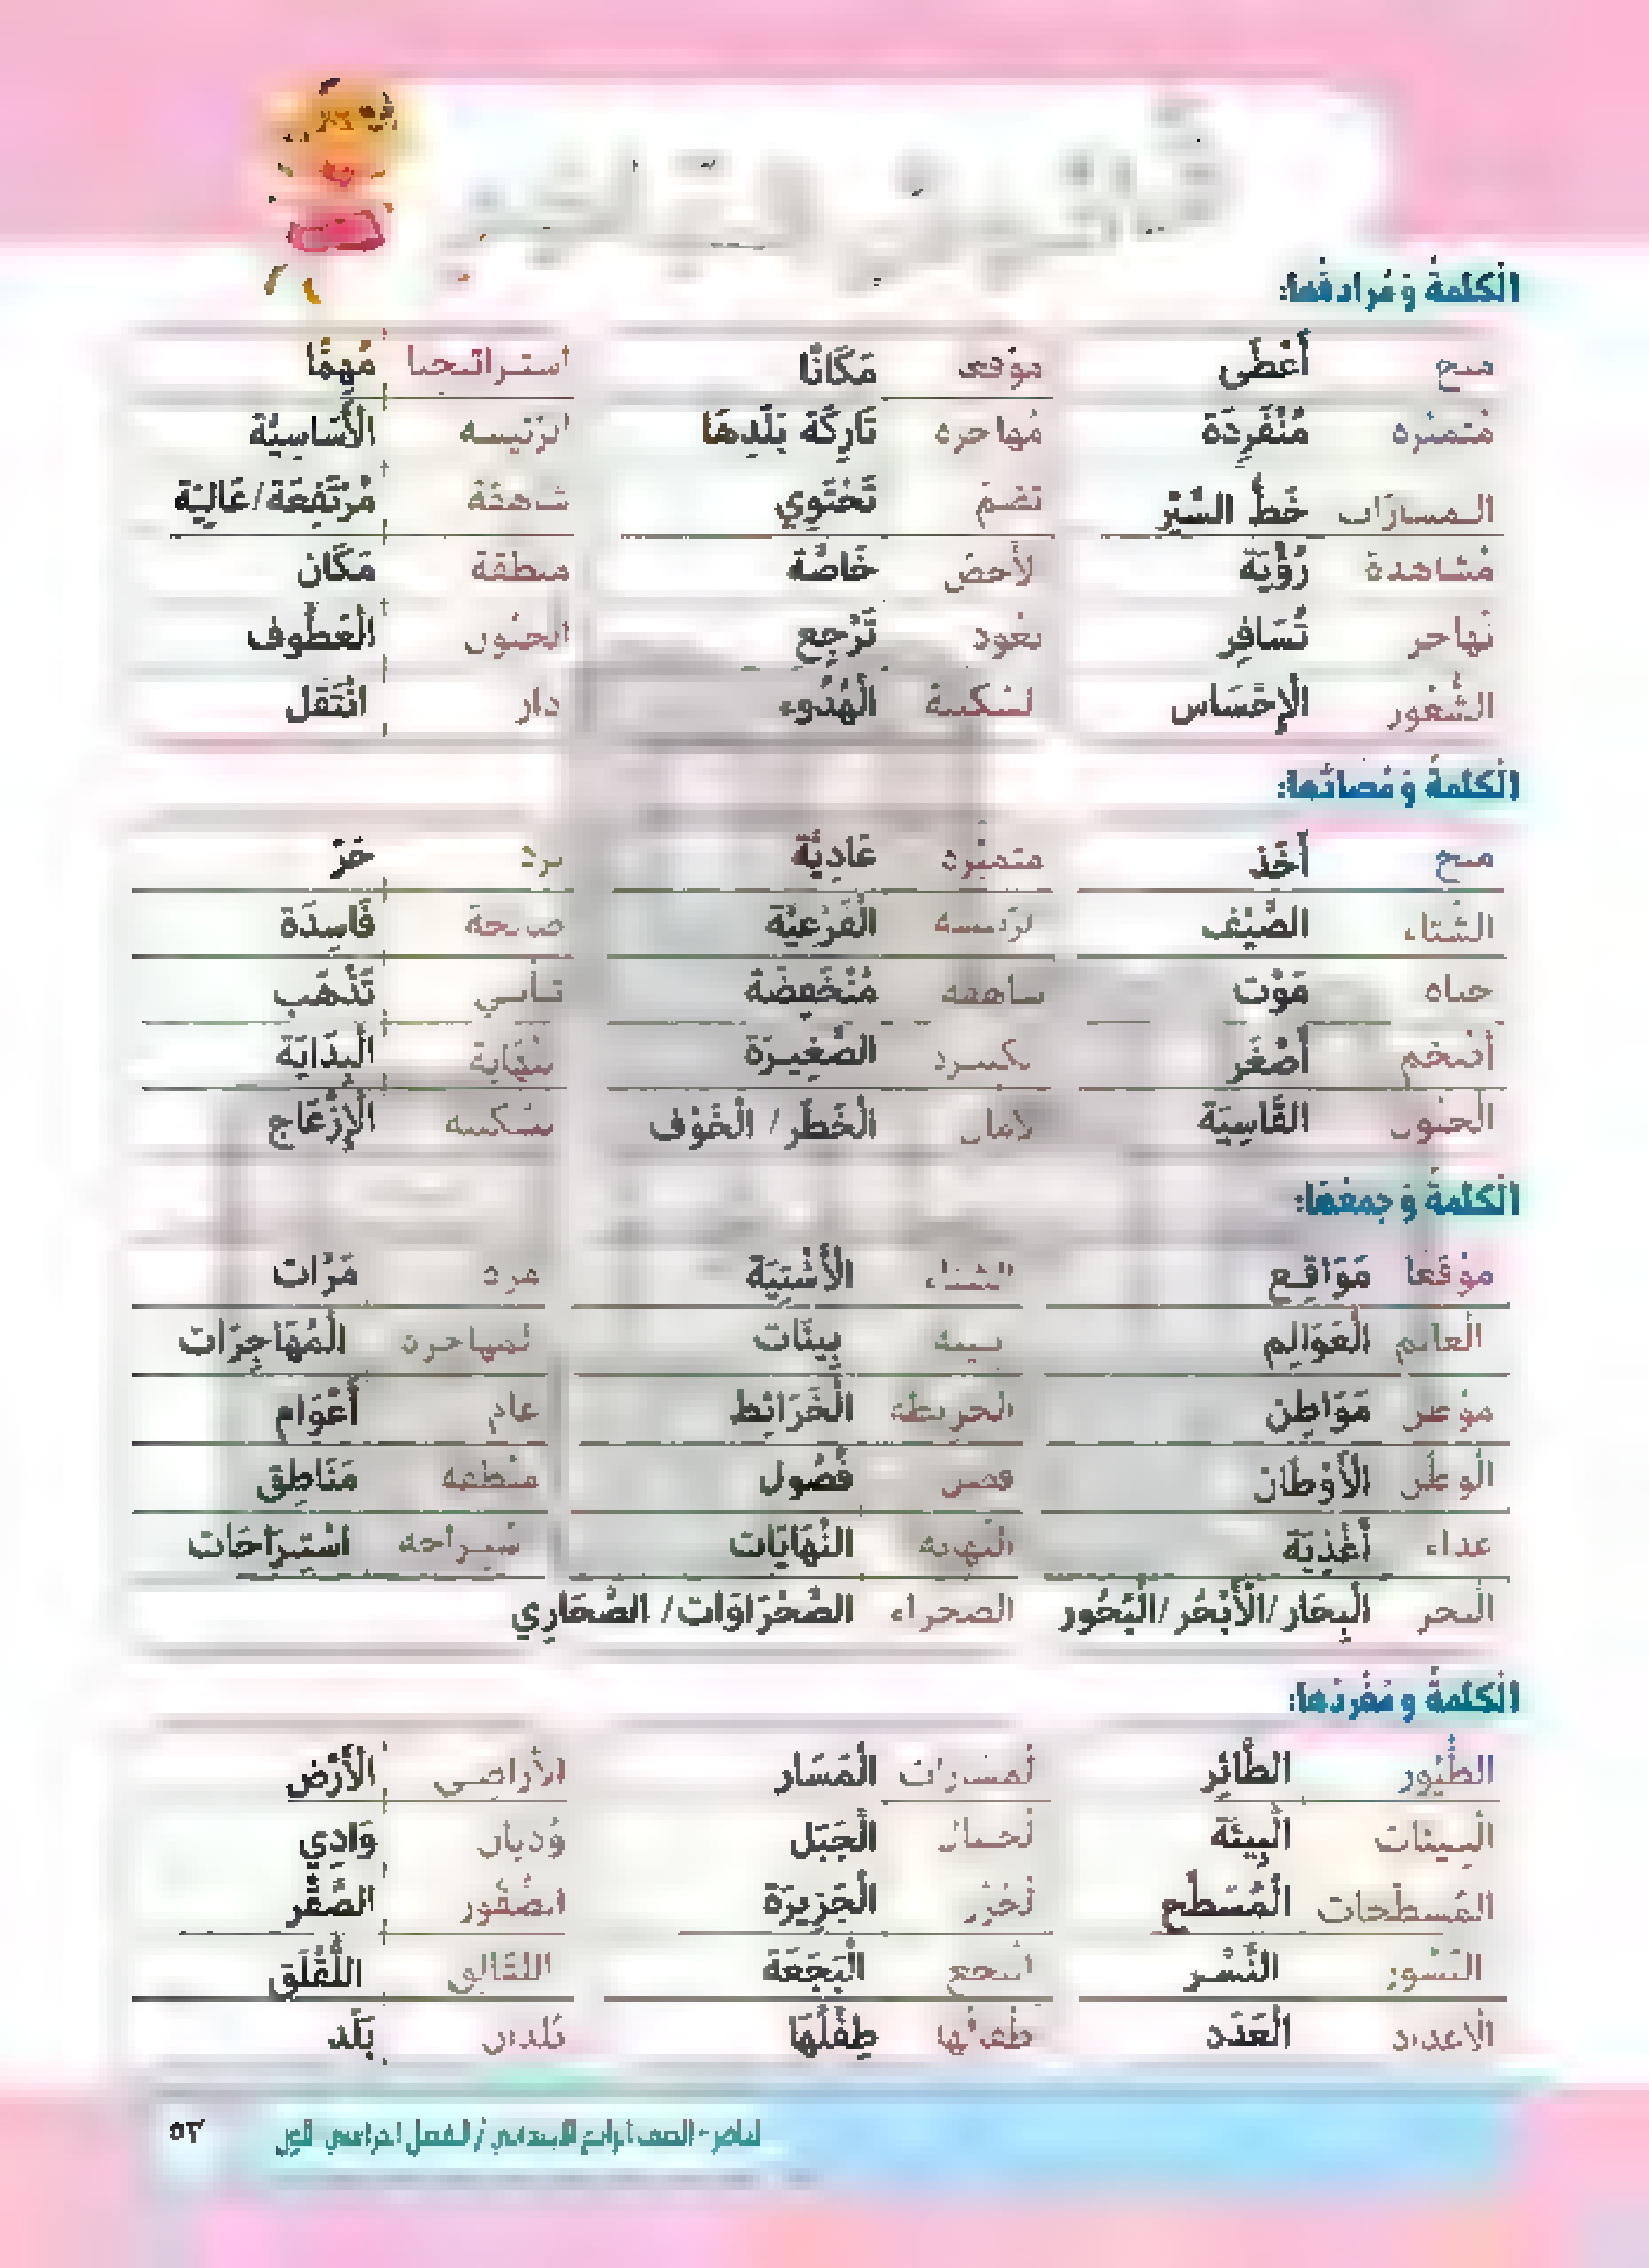 الْكلمةُ وَمُرادفُها:
منح أَعْطَى موقعا مَكَانًا استراتيجيا مُهِمًّا
مُتميزة مُنْفَرِدَة مُهاجرة تَارِكَة بَلَدِهَا الرئيسة الْأَسَاسِيَّة
المسارات خَطُّ السَّيْر تضم تَحْتَوِي شاهقة مُرْتَفِعَة/عَالِيَة
مُشاهدة رُؤْيَة لأخص خَاصَّة منطقة مَكَان
تُهاجر تُسَافِر تعود تَرْجِع الحنون الْعَطُوف
الشُّعُور الْإِحْسَاس السكينة الْهُدُوء دار انْتَقَل
الْكلمةُ وَمُضادُّها:
منح أَخَذ متميزة عَادِيَّة برد حَرّ
الشتاء الصَّيْف الرئيسة الْفَرْعِيَّة صالحة فَاسِدَة
حياة مَوْت شاهقة مُنْخَفِضَة تأتي تَذْهَب
أضخم أَصْغَر الصَّغِيرَة النهاية الْبِدَايَة
الْحنون الْقَاسِيَة الأمان الْخَطَر/ الْخَوْف السكينة الْإِزْعَاج
الْكلمةُ وَجمعُها:
موْقعًا مَوَاقِع الشتاء الْأَشْتِيَة مرة مَرَّات
الْعالم الْعَوَالِم بيئة بِيئَات المهاجرة الْمُهَاجِرَات
موطن مَوَاطِن الخريطة الْخَرَائِط عام أَعْوَام
الْوطن الْأَوْطَان فصل فُصُول منطقة مَنَاطِق
غذاء أَغْذِيَة النهاية النِّهَايَات استراحة اسْتِرَاحَات
الْبحر الْبِحَار/الْأَبْحُر/الْبُحُور الصحراء الصَّحْرَاوَات/ الصَّحَارِي
الْكلمةُ ومُفردُها:
الطُّيُور الطَّائِر المسارات الْمَسَار الأراضي الْأَرْض
الْبيئات الْبِيئَة الجبال الْجَبَل وُديان وَادِي
المُسطحات الْمُسَطَّح الجُزر الْجَزِيرَة الصُّقُور الصَّقْر
النسور النَّسْر البجع الْبَجَعَة اللقالق اللَّقْلَق
الأعداد الْعَدَد طِفْلُهَا بُلدان بَلَد
الصف الرابع الابتدائي / الفصل الدراسي الأول
٥٣